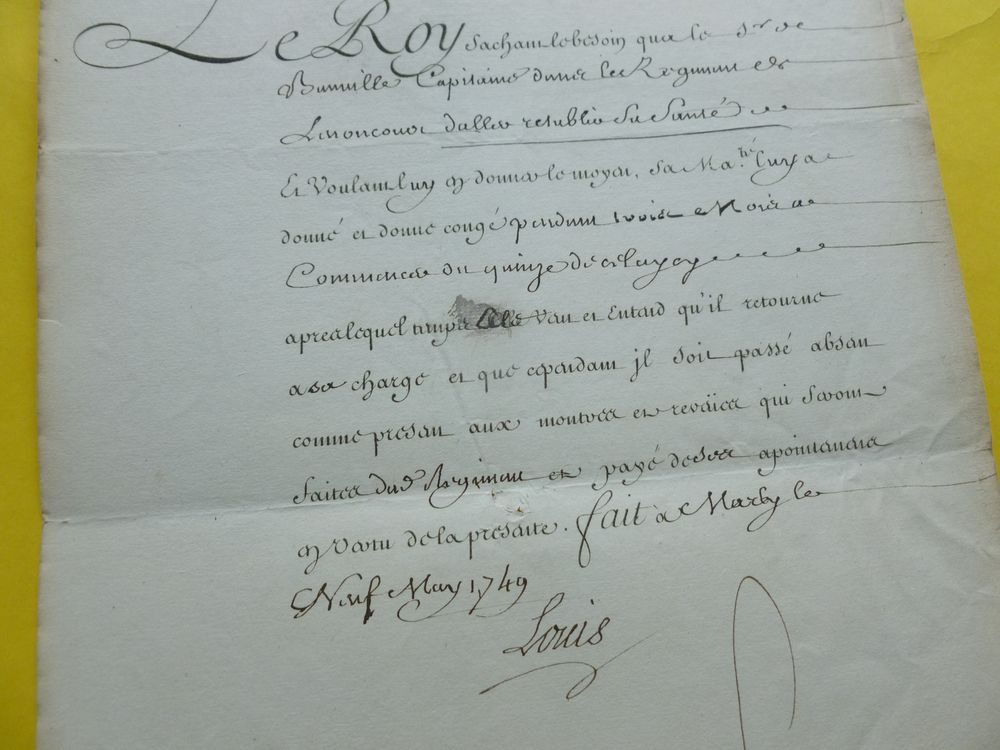 Le Roy sachant le besoin que le Sr. de
Capitaine dans le Regiment de
d'aller restablir sa Santé
Et Voulant luy en donner le moyen, sa Ma.té luy a
donné et donne congé pendant trois Mois a
Commencer du quinze de celuy cy
apres lequel temps Elle Veut et Entend qu'il retourne
a sa charge et que cependant jl soit passé absent
comme present aux montres et reveües qui seront
faites dud Regiment et payé de ses apointemens
en vertu de la presente. fait a Marly le
Neuf May 1749
Louis